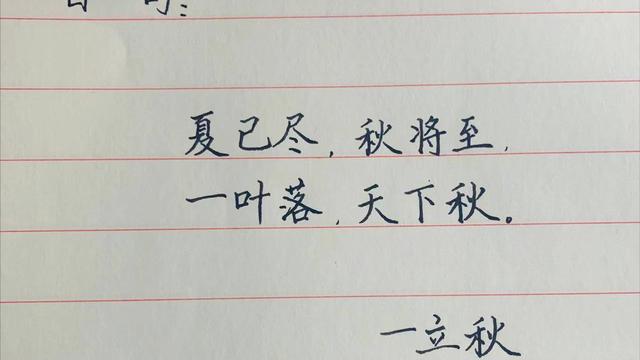 夏已尽，秋将至，
一叶落，天下秋。
一立秋